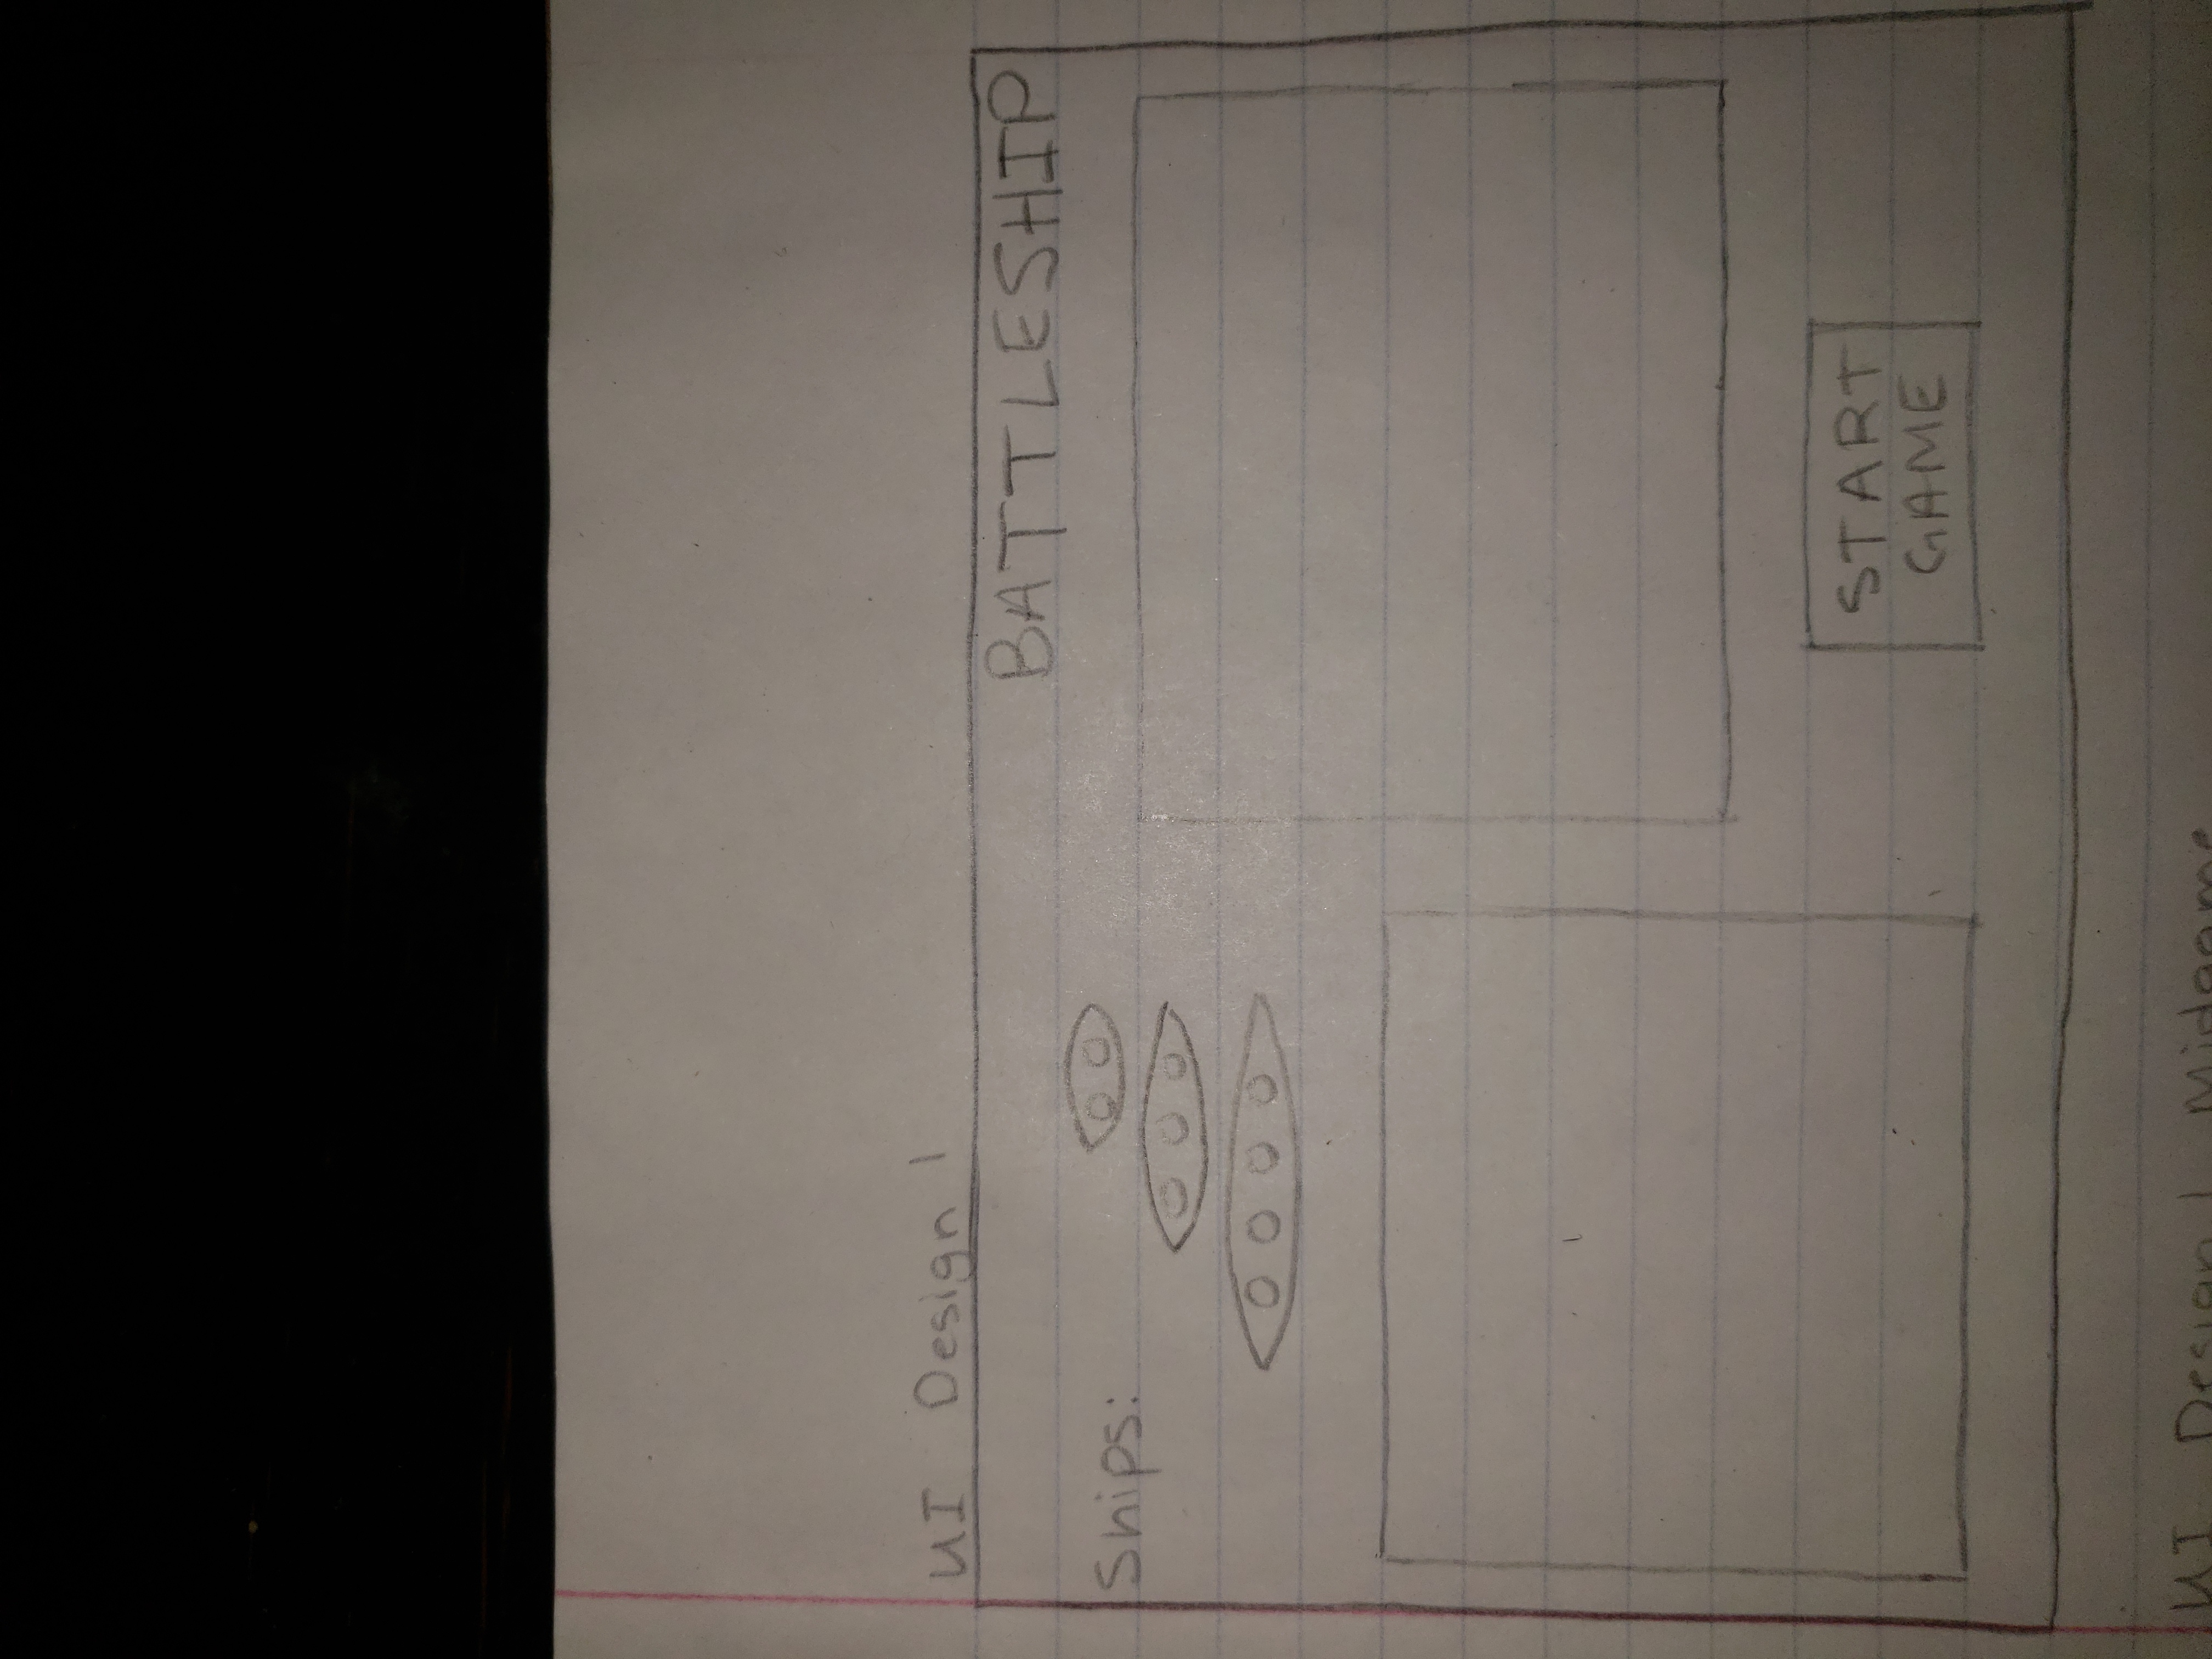 UI Design 1
BATTLESHIP
Ships:
START
GAME
UI Design 1 Midgame